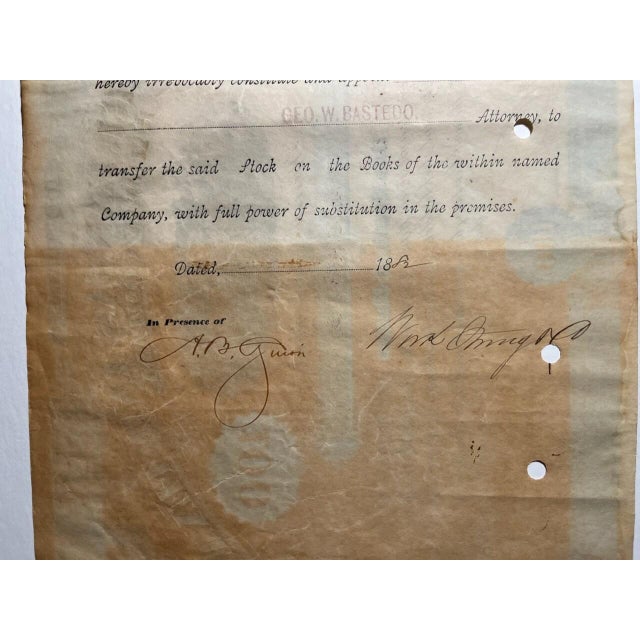 hereby irrevocably constitute and appoint
GEO. W. BASTEDO. Attorney, to
transfer the said Stock on the Books of the within named
Company, with full power of substitution in the premises.
Dated, 1882
In Presence of
A. B.
Work